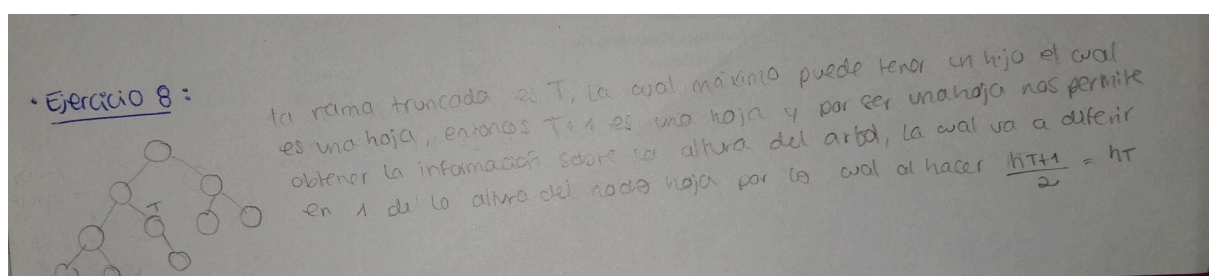 · Ejercicio 8:
la rama truncada es T, la cual máximo puede tener un hijo el cual
es una hoja, entonces T+1 es una hoja y por ser una hoja nos permite
obtener la información sobre la altura del arbol, la cual va a diferir
en 1 de la altura del nodo hoja por lo cual al hacer hT+1/2 = hT
T